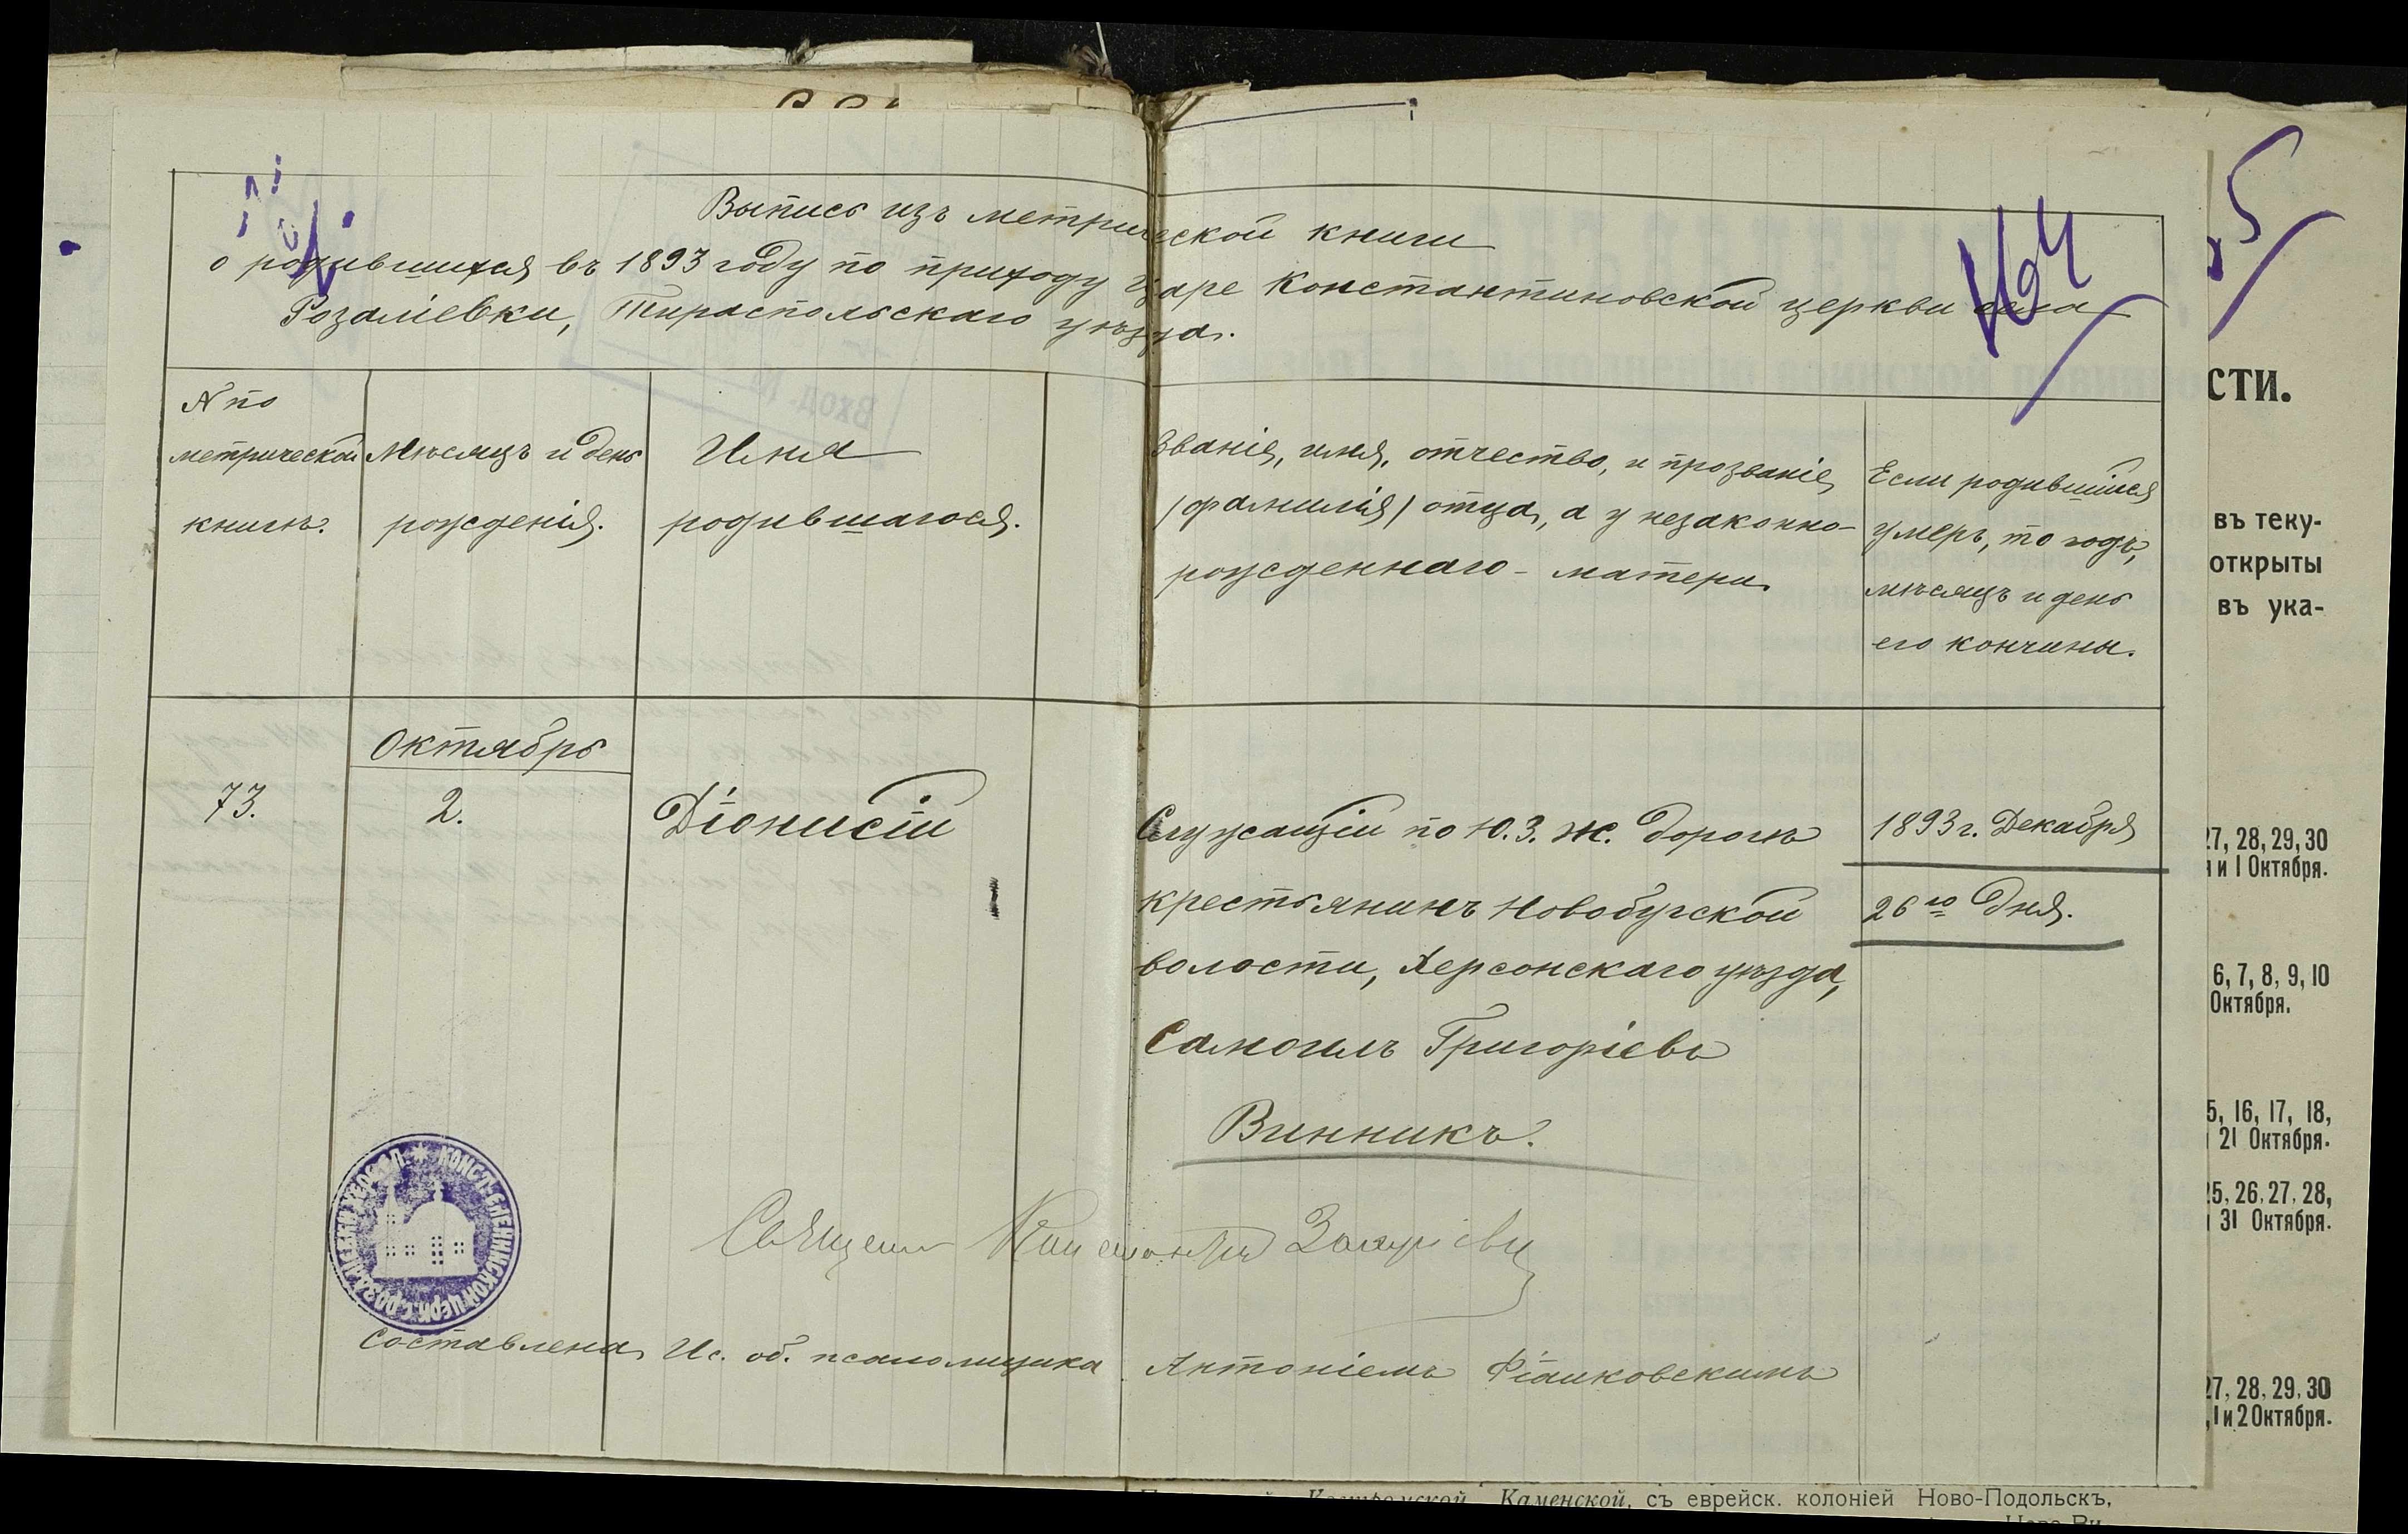 Выпись изъ метрической книги
о родившихся въ 1893 году по приходу Царе Константиновской церкви села
Розаліевки, Тираспольскаго уѣзда.
N по
метрической
книгѣ.
Мѣсяцъ и день
рожденія.
Имя
родившагося.
Званіе, имя, отчество, и прозваніе
(фамилія) отца, а у незаконно-
рожденнаго - матери.
Если родившійся
умеръ, то годъ,
мѣсяцъ и день
его кончины.
73.
Октябрь
2.
Діонисій
Служащій по Ю.З. Ж. дорогѣ
крестьянинъ Новобугской
волости, Херсонскаго уѣзда,
Самоилъ Григоріевъ
Винникъ.
1893 г. Декабря
26го дня.
Священ Константинъ
Составлена Ис. об. псаломщика Антоніемъ
СТИ.
въ теку-
открыты
въ ука-
27, 28, 29, 30
и 1 Октября.
6, 7, 8, 9, 10
Октября.
5, 16, 17, 18,
21 Октября.
25, 26, 27, 28,
31 Октября.
27, 28, 29, 30
1 и 2 Октября.
Каменской, съ еврейск. колоніей Ново-Подольскъ,